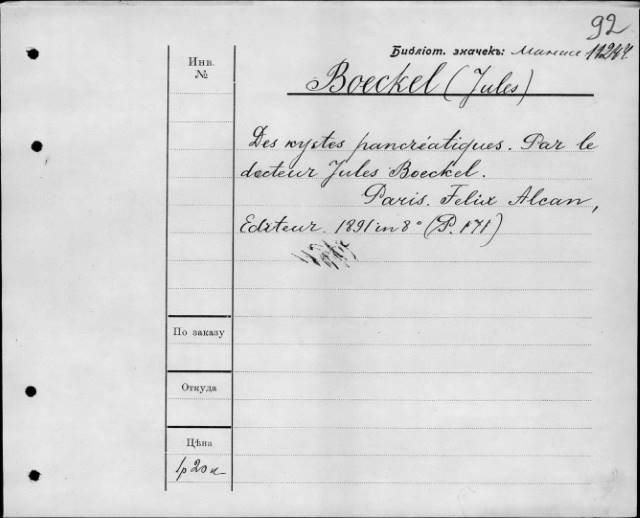 92
Библіот. значекъ: 11244
Инв.
№
Boeckel (Jules)
Des kystes pancréatiques. Par le
docteur Jules Boeckel.
Paris. Felix Alcan,
Editeur. 1891 in 8° (P. 171)
По заказу
Откуда
Цѣна
1р 20к